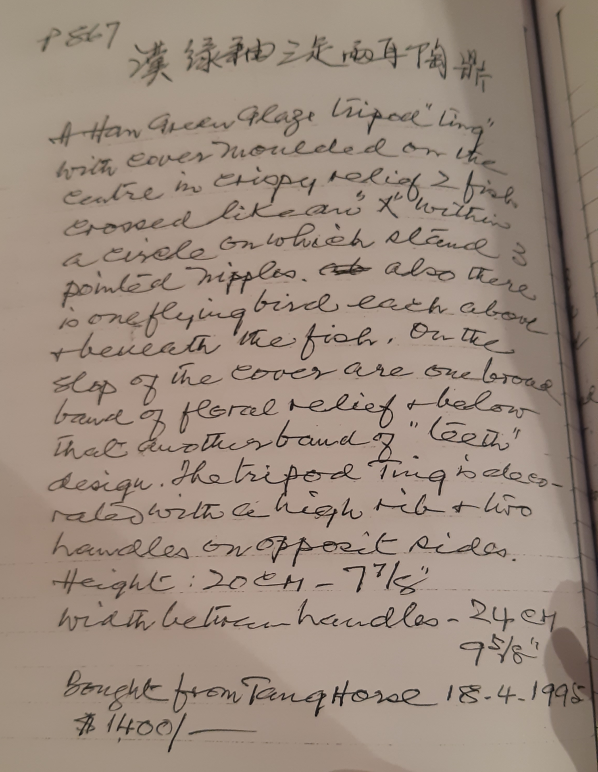 P867
漢 綠釉三足兩耳陶鼎
A Han Green Glaze tripod "Ting"
with cover moulded on the
centre in crispy relief 2 fish
crossed like an "X" within
a circle on which stand 3
pointed nipples. also there
is one flying bird each above
+ beneath the fish. On the
slop of the cover are one broad
band of floral relief + below
that another band of "teeth"
design. The tripod Ting is deco-
rated with a high rib + two
handles on opposit sides.
Height: 20 CM - 7 7/8"
Width between handles - 24 CM
9 5/8"
Bought from Tang Horse 18-4-1995
$1400/—